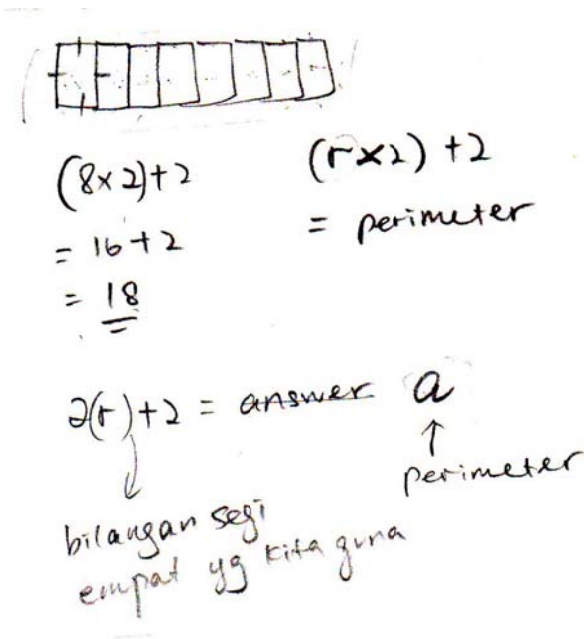 (8×2)+2
= 16+2
= 18
(r×2)+2
= perimeter
2(r)+2 = answer a
perimeter
bilangan segi
empat yg kita guna